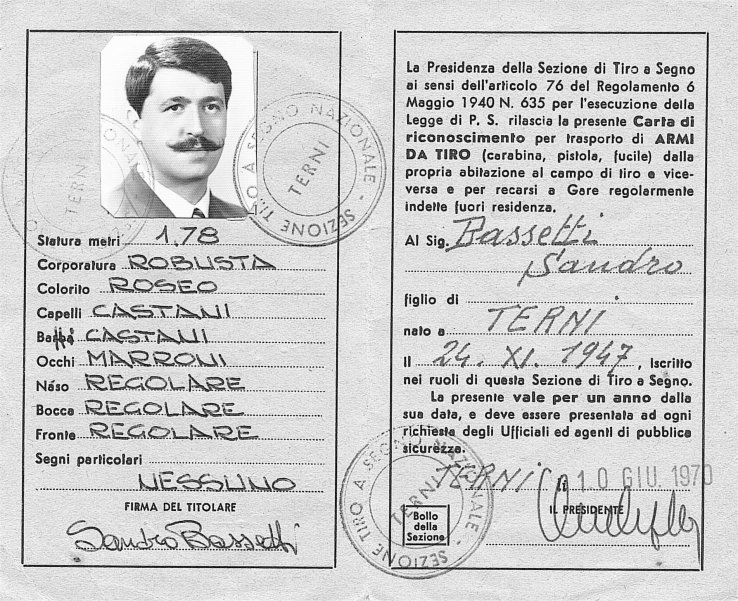 SEZIONE TIRO A SEGNO NAZIONALE
TERNI
Statura metri 1,78
Corporatura ROBUSTA
Colorito ROSEO
Capelli CASTANI
Baffi CASTANI
Occhi MARRONI
Naso REGOLARE
Bocca REGOLARE
Fronte REGOLARE
Segni particolari
NESSUNO
FIRMA DEL TITOLARE
Sandro Bassetti
La Presidenza della Sezione di Tiro a Segno
ai sensi dell'articolo 76 del Regolamento 6
Maggio 1940 N. 635 per l'esecuzione della
Legge di P. S. rilascia la presente Carta di
riconoscimento per trasporto di ARMI
DA TIRO (carabina, pistola, fucile) dalla
propria abitazione al campo di tiro e vice-
versa e per recarsi a Gare regolarmente
indette fuori residenza.
Al Sig. Bassetti
Sandro
figlio di
nato a TERNI
Il 24. XI. 1947, Iscritto
nei ruoli di questa Sezione di Tiro a Segno.
La presente vale per un anno dalla
sua data, e deve essere presentata ad ogni
richiesta degli Ufficiali ed agenti di pubblica
sicurezza.
TERNI li 10 GIU. 1970
IL PRESIDENTE
Bollo
della
Sezione
SEZIONE TIRO A SEGNO NAZIONALE
TERNI